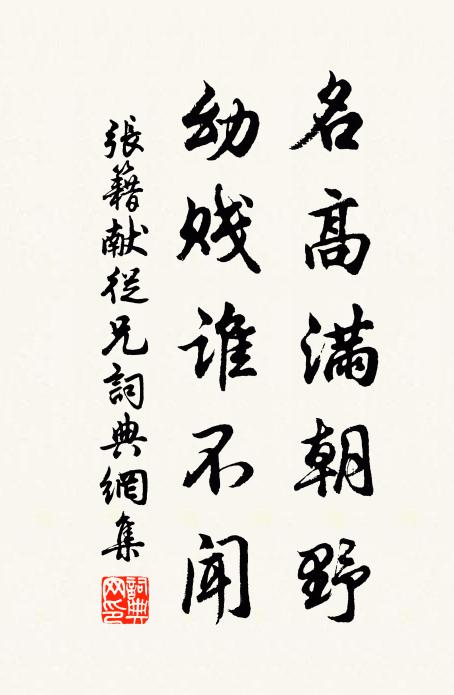 名高满朝野
幼贱谁不闻
張籍献從兄詞典網集
詞典網印